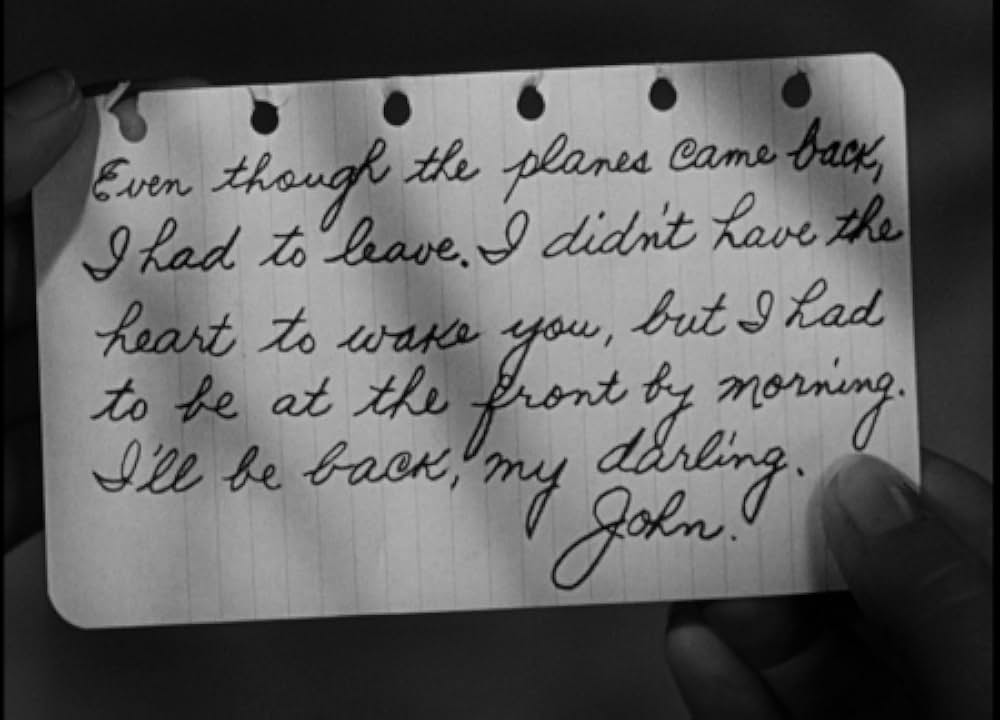 Even though the planes came back,
I had to leave. I didn't have the
heart to wake you, but I had
to be at the front by morning.
I'll be back, my darling.
John.